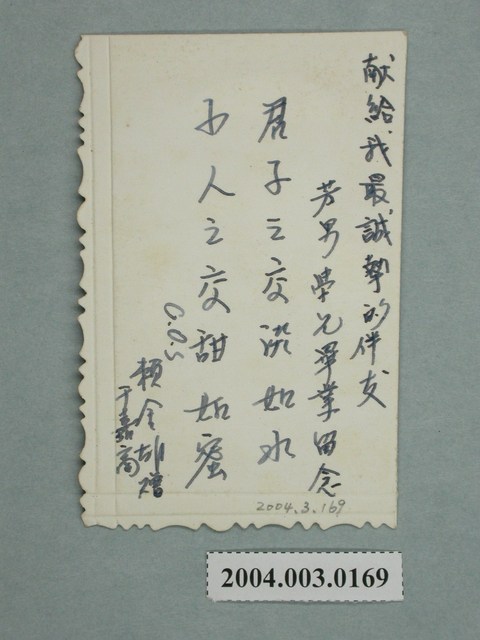 献給我最誠摯的伴友
芳男學兄畢業留念
君子之交淡如水
小人之交甜如蜜
C.O.S
賴金雄贈
于嘉商
2004.3.169
2004.003.0169